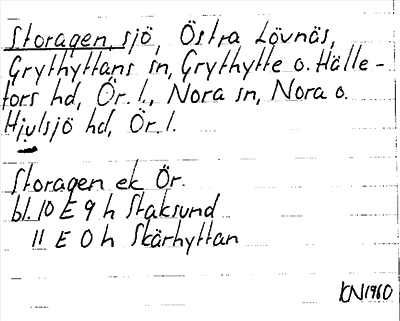 Storagen, sjö, Östra Lövnäs,
Grythyttans sn, Grythytte o. Hälle-
fors hd, Ör. l., Nora sn, Nora o.
Hjulsjö hd, Ör. l.
Storagen ek Ör.
bl. 10 E 9 h Staksund
11 E 0 h Skärhyttan
KN 1960